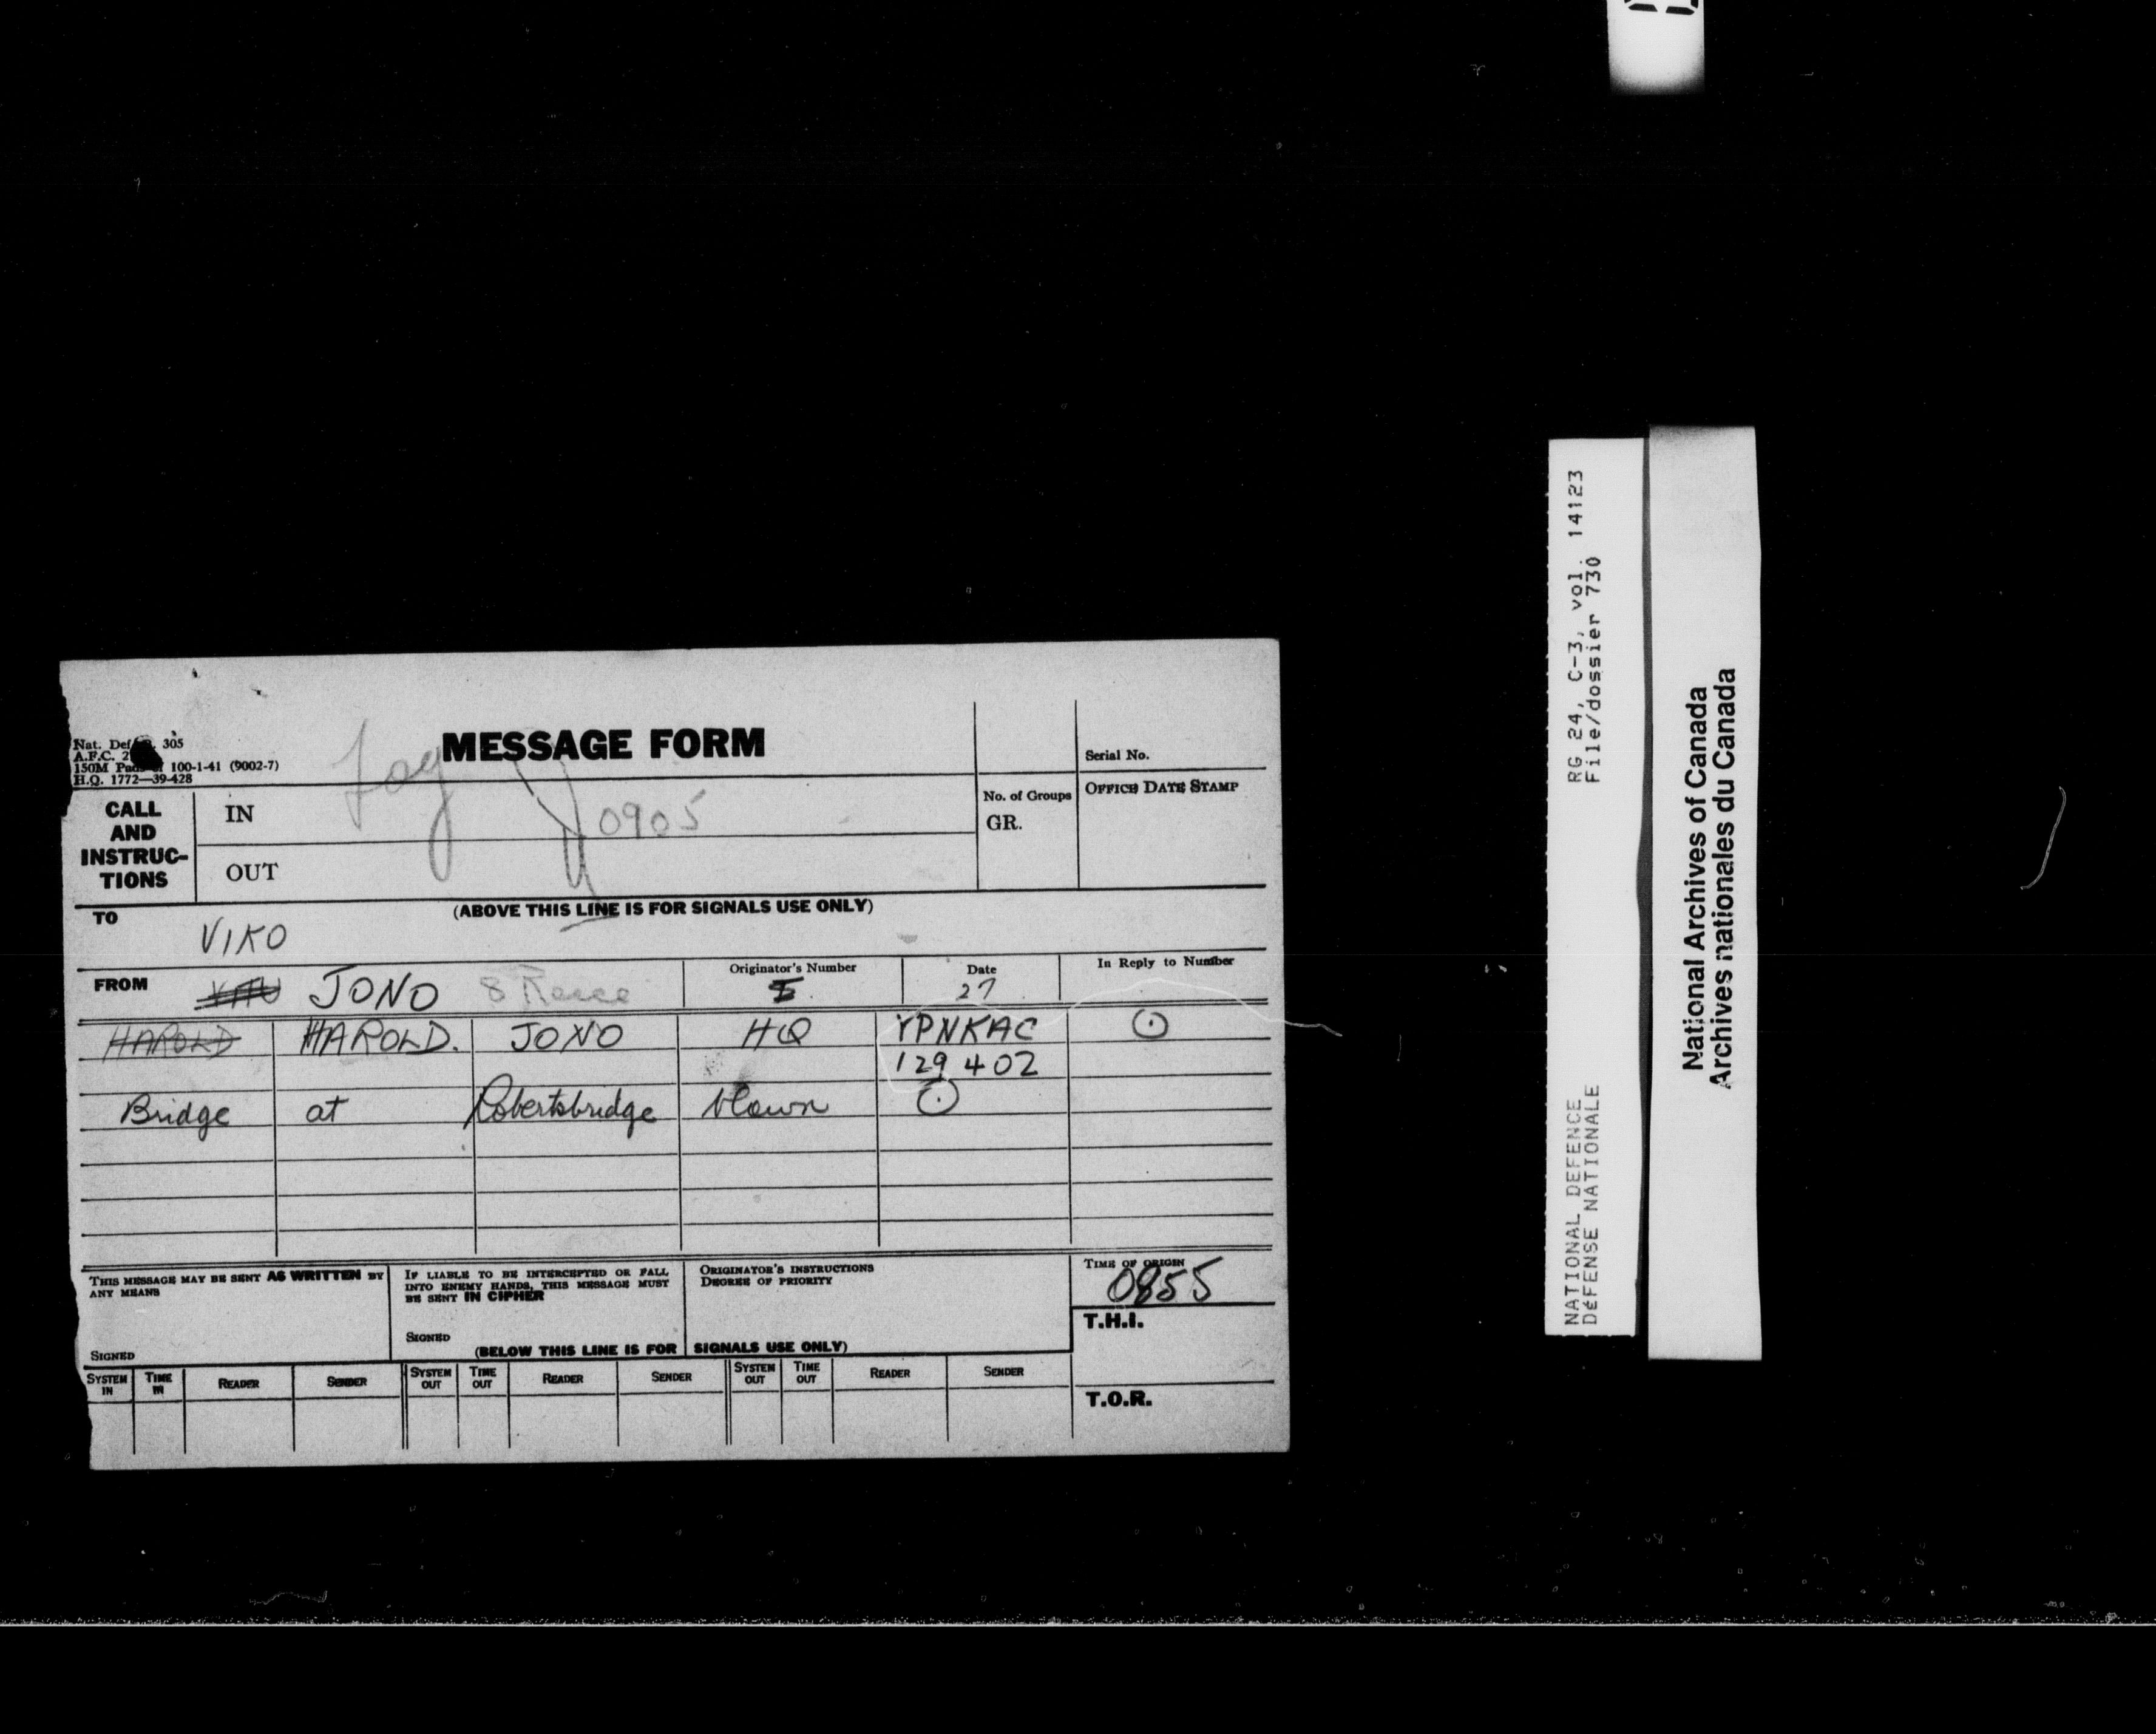 MESSAGE FORM
Nat. Def. 305
A.F.C. 2
150M Pads of 100-1-41 (9002-7)
H.Q. 1772—39-428
Serial No.
CALL AND INSTRUC-TIONS
IN
0905
OUT
No. of Groups
GR.
OFFICE DATE STAMP
(ABOVE THIS LINE IS FOR SIGNALS USE ONLY)
TO VIKO
FROM JONO 8 Recce
Originator's Number
Date 27
In Reply to Number
HAROLD HAROLD. JONO HQ YPNKAC ⊙
129 402
Bridge at Robertsbridge blown ⊙
THIS MESSAGE MAY BE SENT AS WRITTEN BY ANY MEANS
SIGNED
IF LIABLE TO BE INTERCEPTED OR FALL INTO ENEMY HANDS, THIS MESSAGE MUST BE SENT IN CIPHER
SIGNED
ORIGINATOR'S INSTRUCTIONS
DEGREE OF PRIORITY
TIME OF ORIGIN
0855
T.H.I.
(BELOW THIS LINE IS FOR SIGNALS USE ONLY)
SYSTEM IN TIME IN READER SENDER SYSTEM OUT TIME OUT READER SENDER SYSTEM OUT TIME OUT READER SENDER
T.O.R.
NATIONAL DEFENCE RG 24, C-3, vol. 14123
DéFENSE NATIONALE File/dossier 730
National Archives of Canada
Archives nationales du Canada